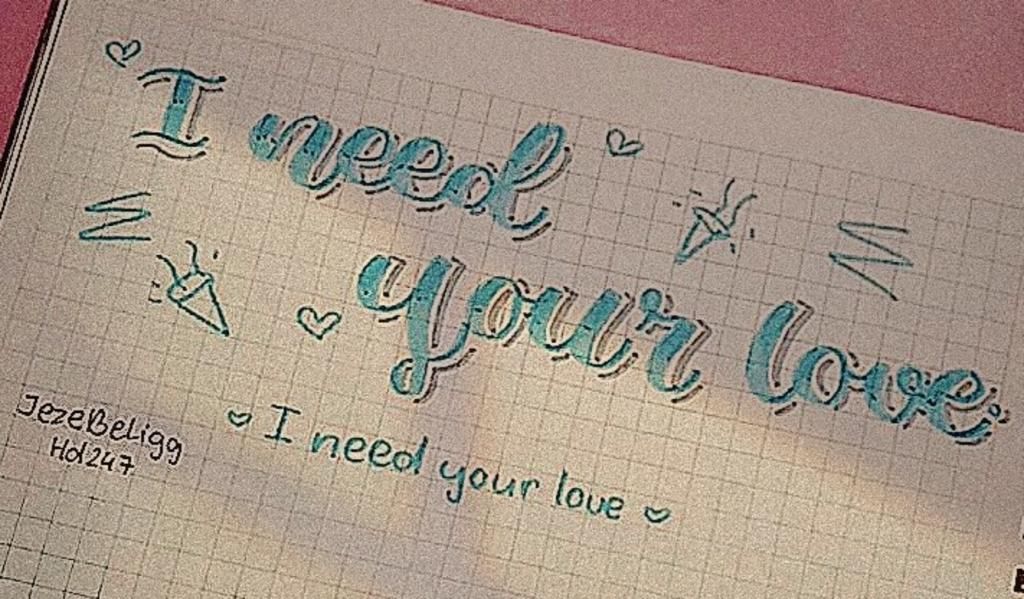 I need
your love
I need your love
JezeBeligg
Hol247